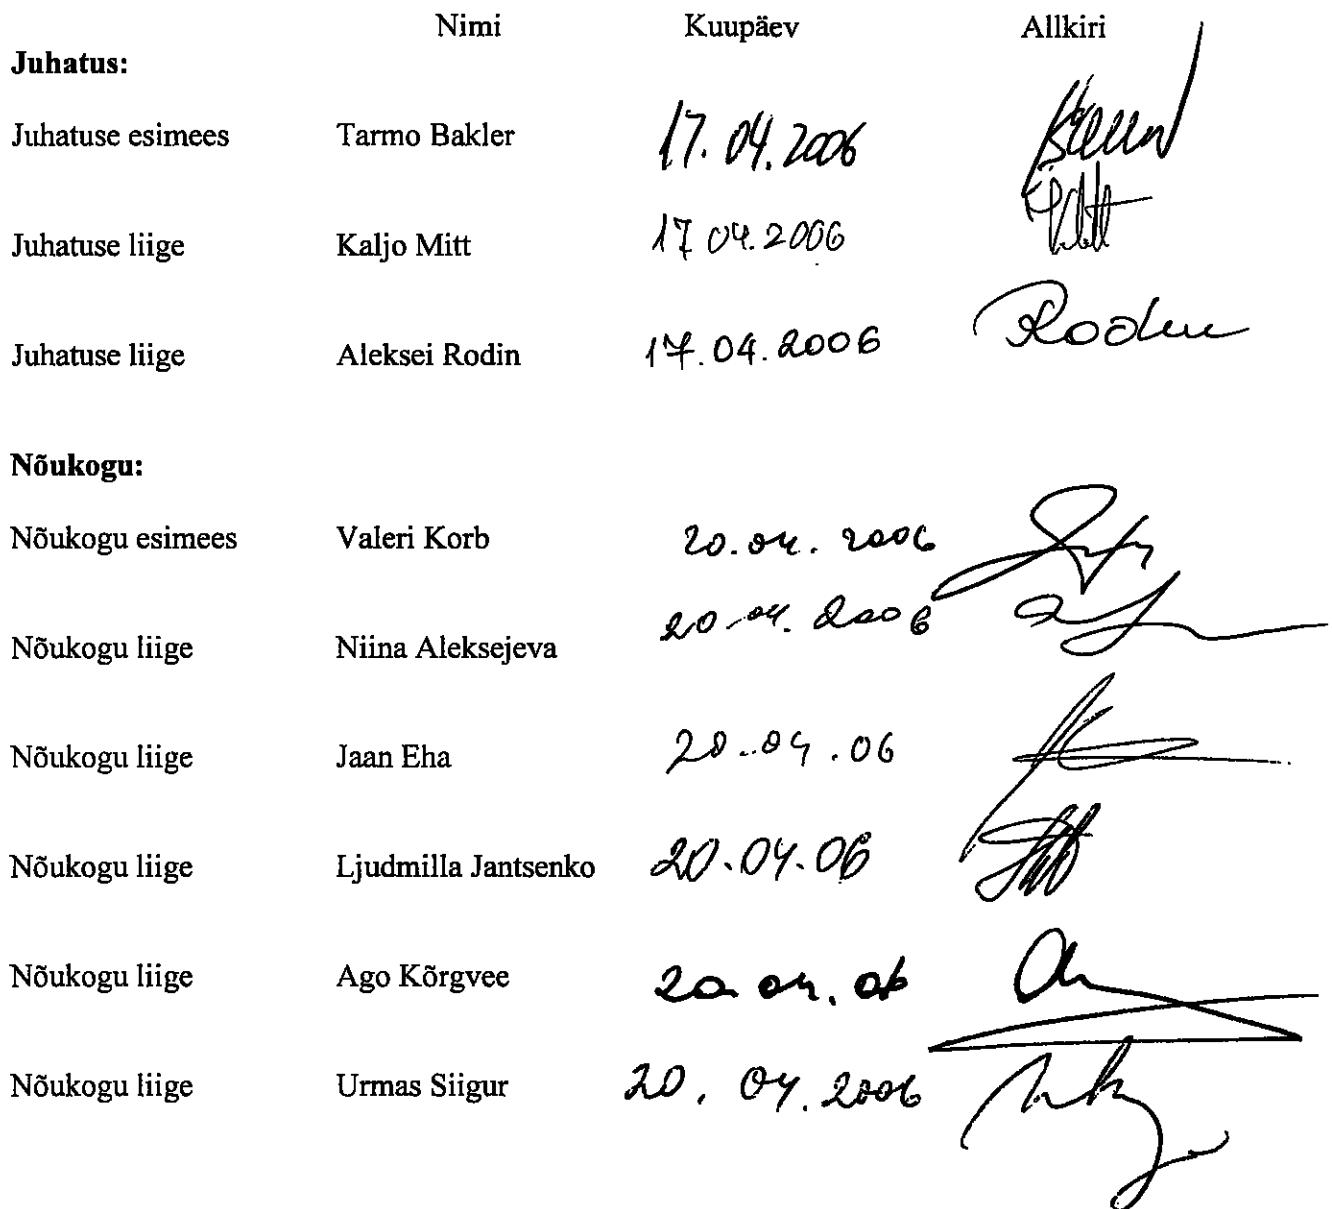 Nimi Kuupäev Allkiri
Juhatus:
Juhatuse esimees Tarmo Bakler 17.04.2006
Juhatuse liige Kaljo Mitt 17 04.2006
Juhatuse liige Aleksei Rodin 17.04.2006 Rodin
Nõukogu:
Nõukogu esimees Valeri Korb 20.04.2006
Nõukogu liige Niina Aleksejeva 20.04.2006
Nõukogu liige Jaan Eha 20.04.06
Nõukogu liige Ljudmilla Jantsenko 20.04.06
Nõukogu liige Ago Kõrgvee 20 04.06
Nõukogu liige Urmas Siigur 20.04.2006